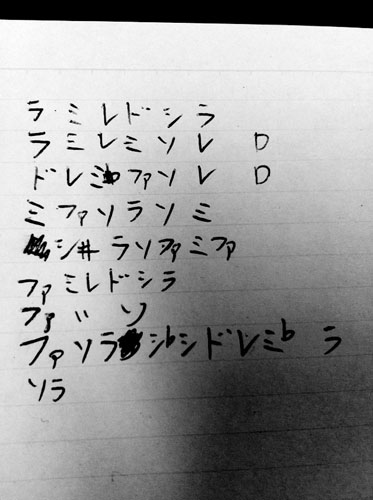 ラ ミ レ ド シ ラ
ラ ミ レ ミ ソ レ D
ド レ ミb ファ ソ レ D
ミ ファ ソ ラ ソ ミ
シ# ラ ソ ファ ミ ファ
ファ ミ レ ド シ ラ
ファ 〃 ソ
ファ ソ ラ シb シ ド レ ミb ラ
ソ ラ